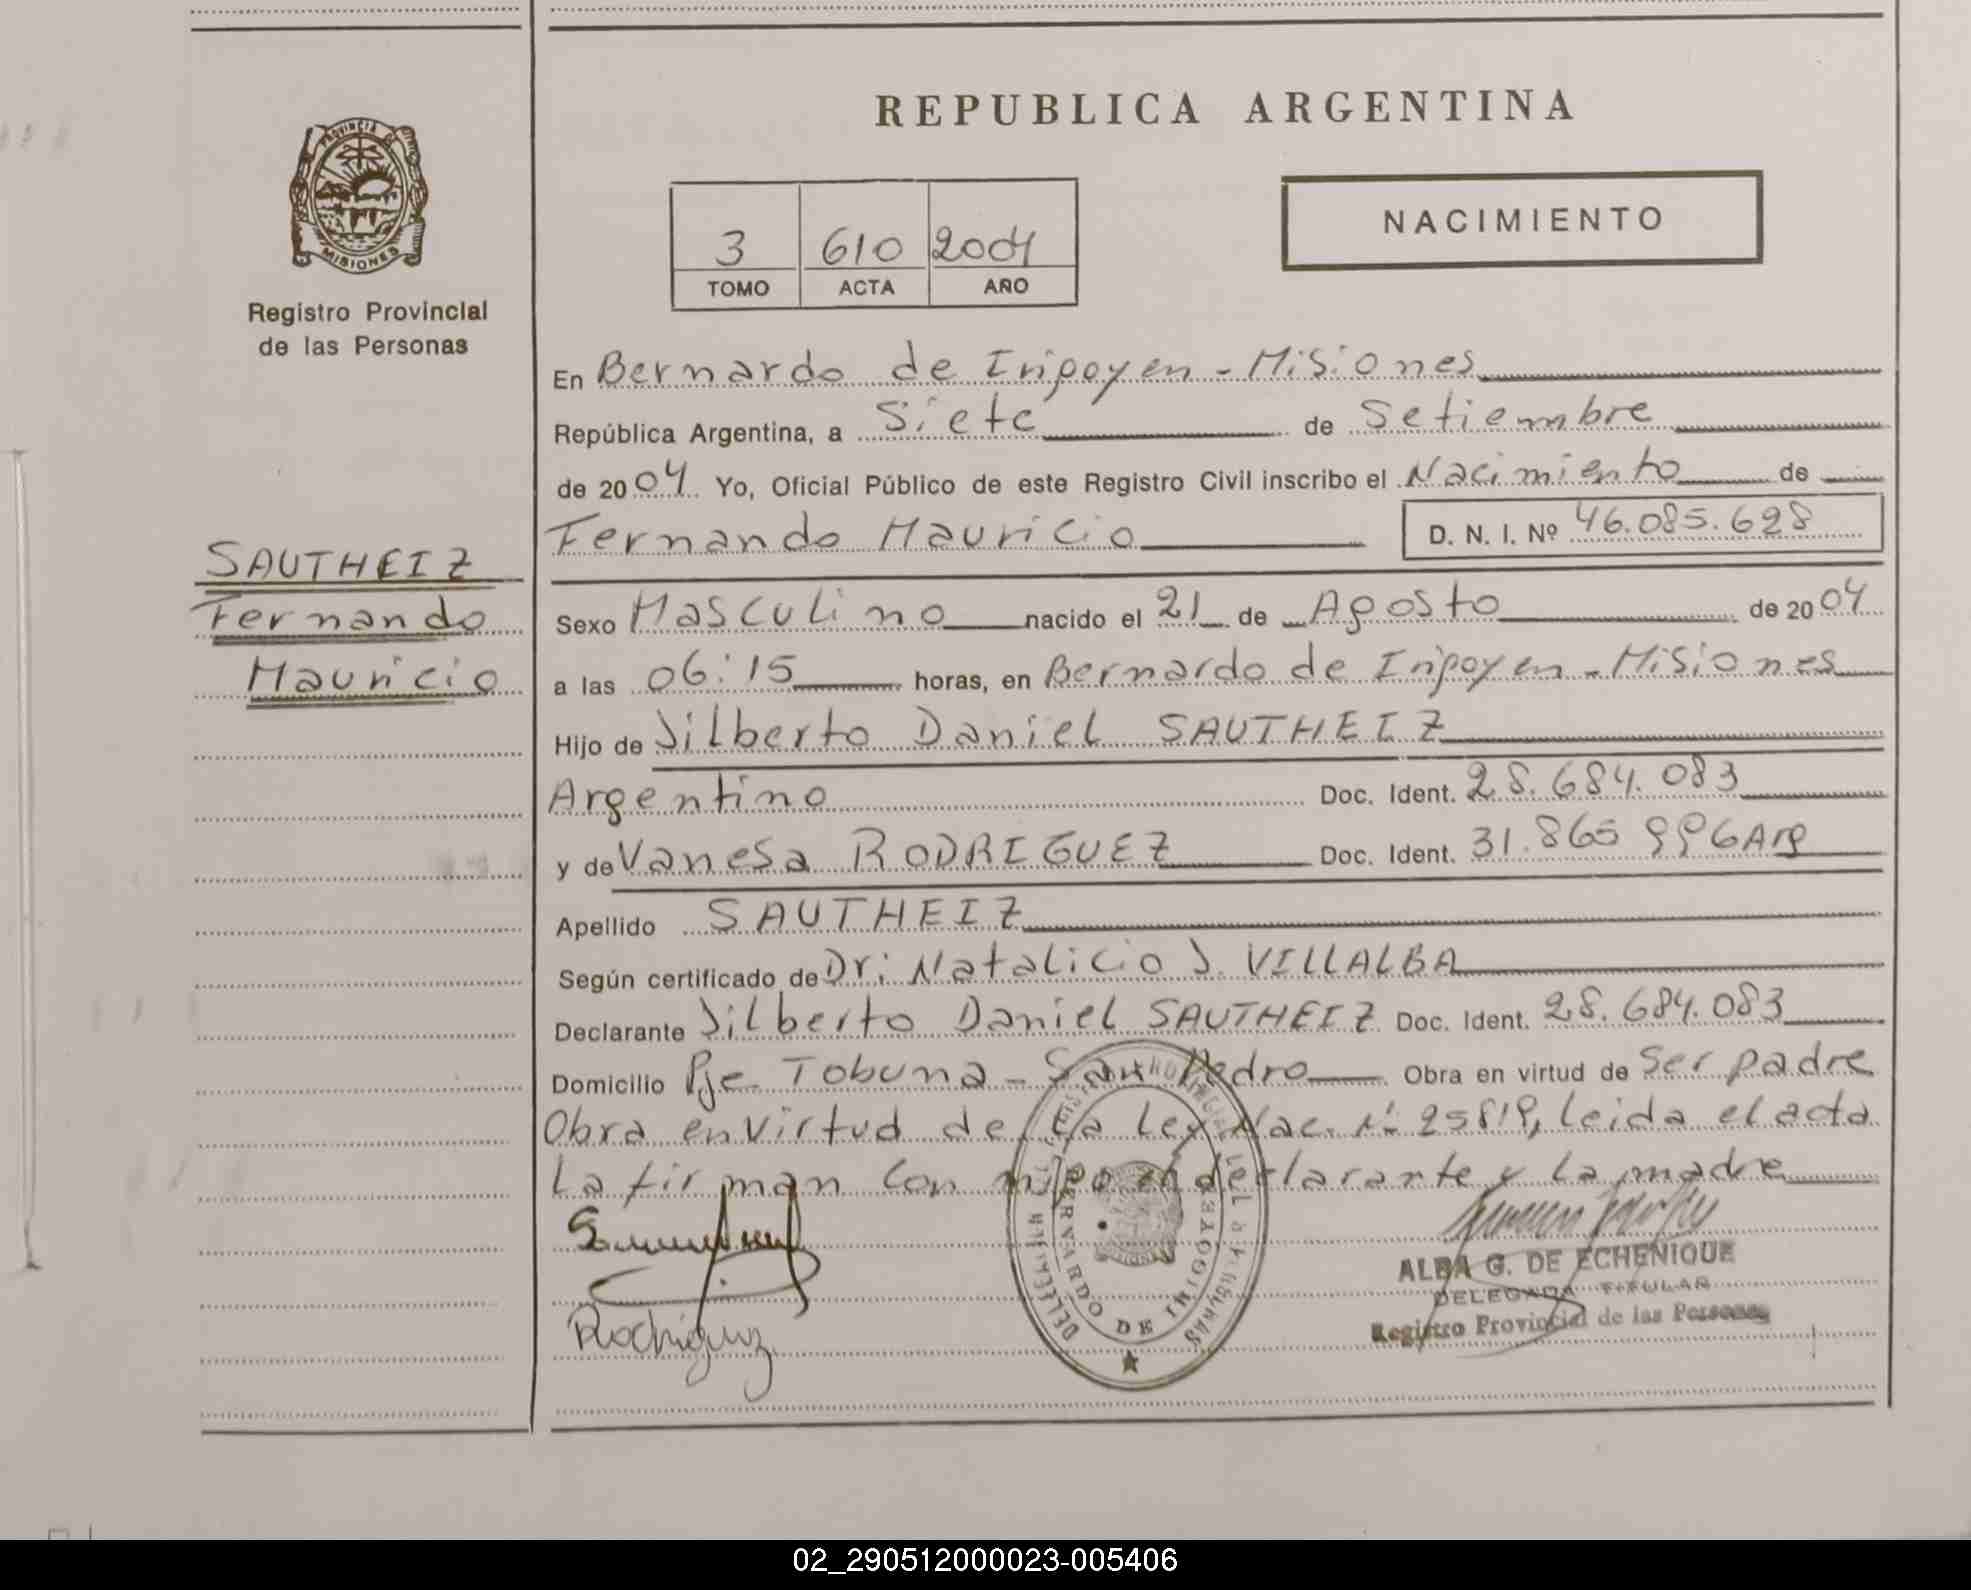 REPUBLICA ARGENTINA
PROVINCIA DE
MISIONES
Registro Provincial
de las Personas
3 610 2004
TOMO ACTA AÑO
NACIMIENTO
SAUTHEIZ
Fernando
Mauricio
En Bernardo de Iripoyen - Misiones
República Argentina, a Siete de Setiembre
de 2004 Yo, Oficial Público de este Registro Civil inscribo el Nacimiento de
Fernando Mauricio D. N. I. Nº 46.085.628
Sexo Masculino nacido el 21 de Agosto de 2004
a las 06:15 horas, en Bernardo de Iripoyen - Misiones
Hijo de Jilberto Daniel SAUTHEIZ
Argentino Doc. Ident. 28.684.083
y de Vanesa RODRIGUEZ Doc. Ident. 31.865 996 Arg
Apellido SAUTHEIZ
Según certificado de Dr: Natalicio J. VILLALBA
Declarante Jilberto Daniel SAUTHEIZ Doc. Ident. 28.684.083
Domicilio Pje. Tobuna - San Pedro Obra en virtud de Ser padre
Obra en virtud de La Ley Nac. Nº 25819, leida el acta
La firman con migo el declarante y la madre
Rodriguez
BERNARDO DE IRIGOYEN
ALBA G. DE ECHENIQUE
DELEGADA TITULAR
Registro Provincial de las Personas
02_290512000023-005406